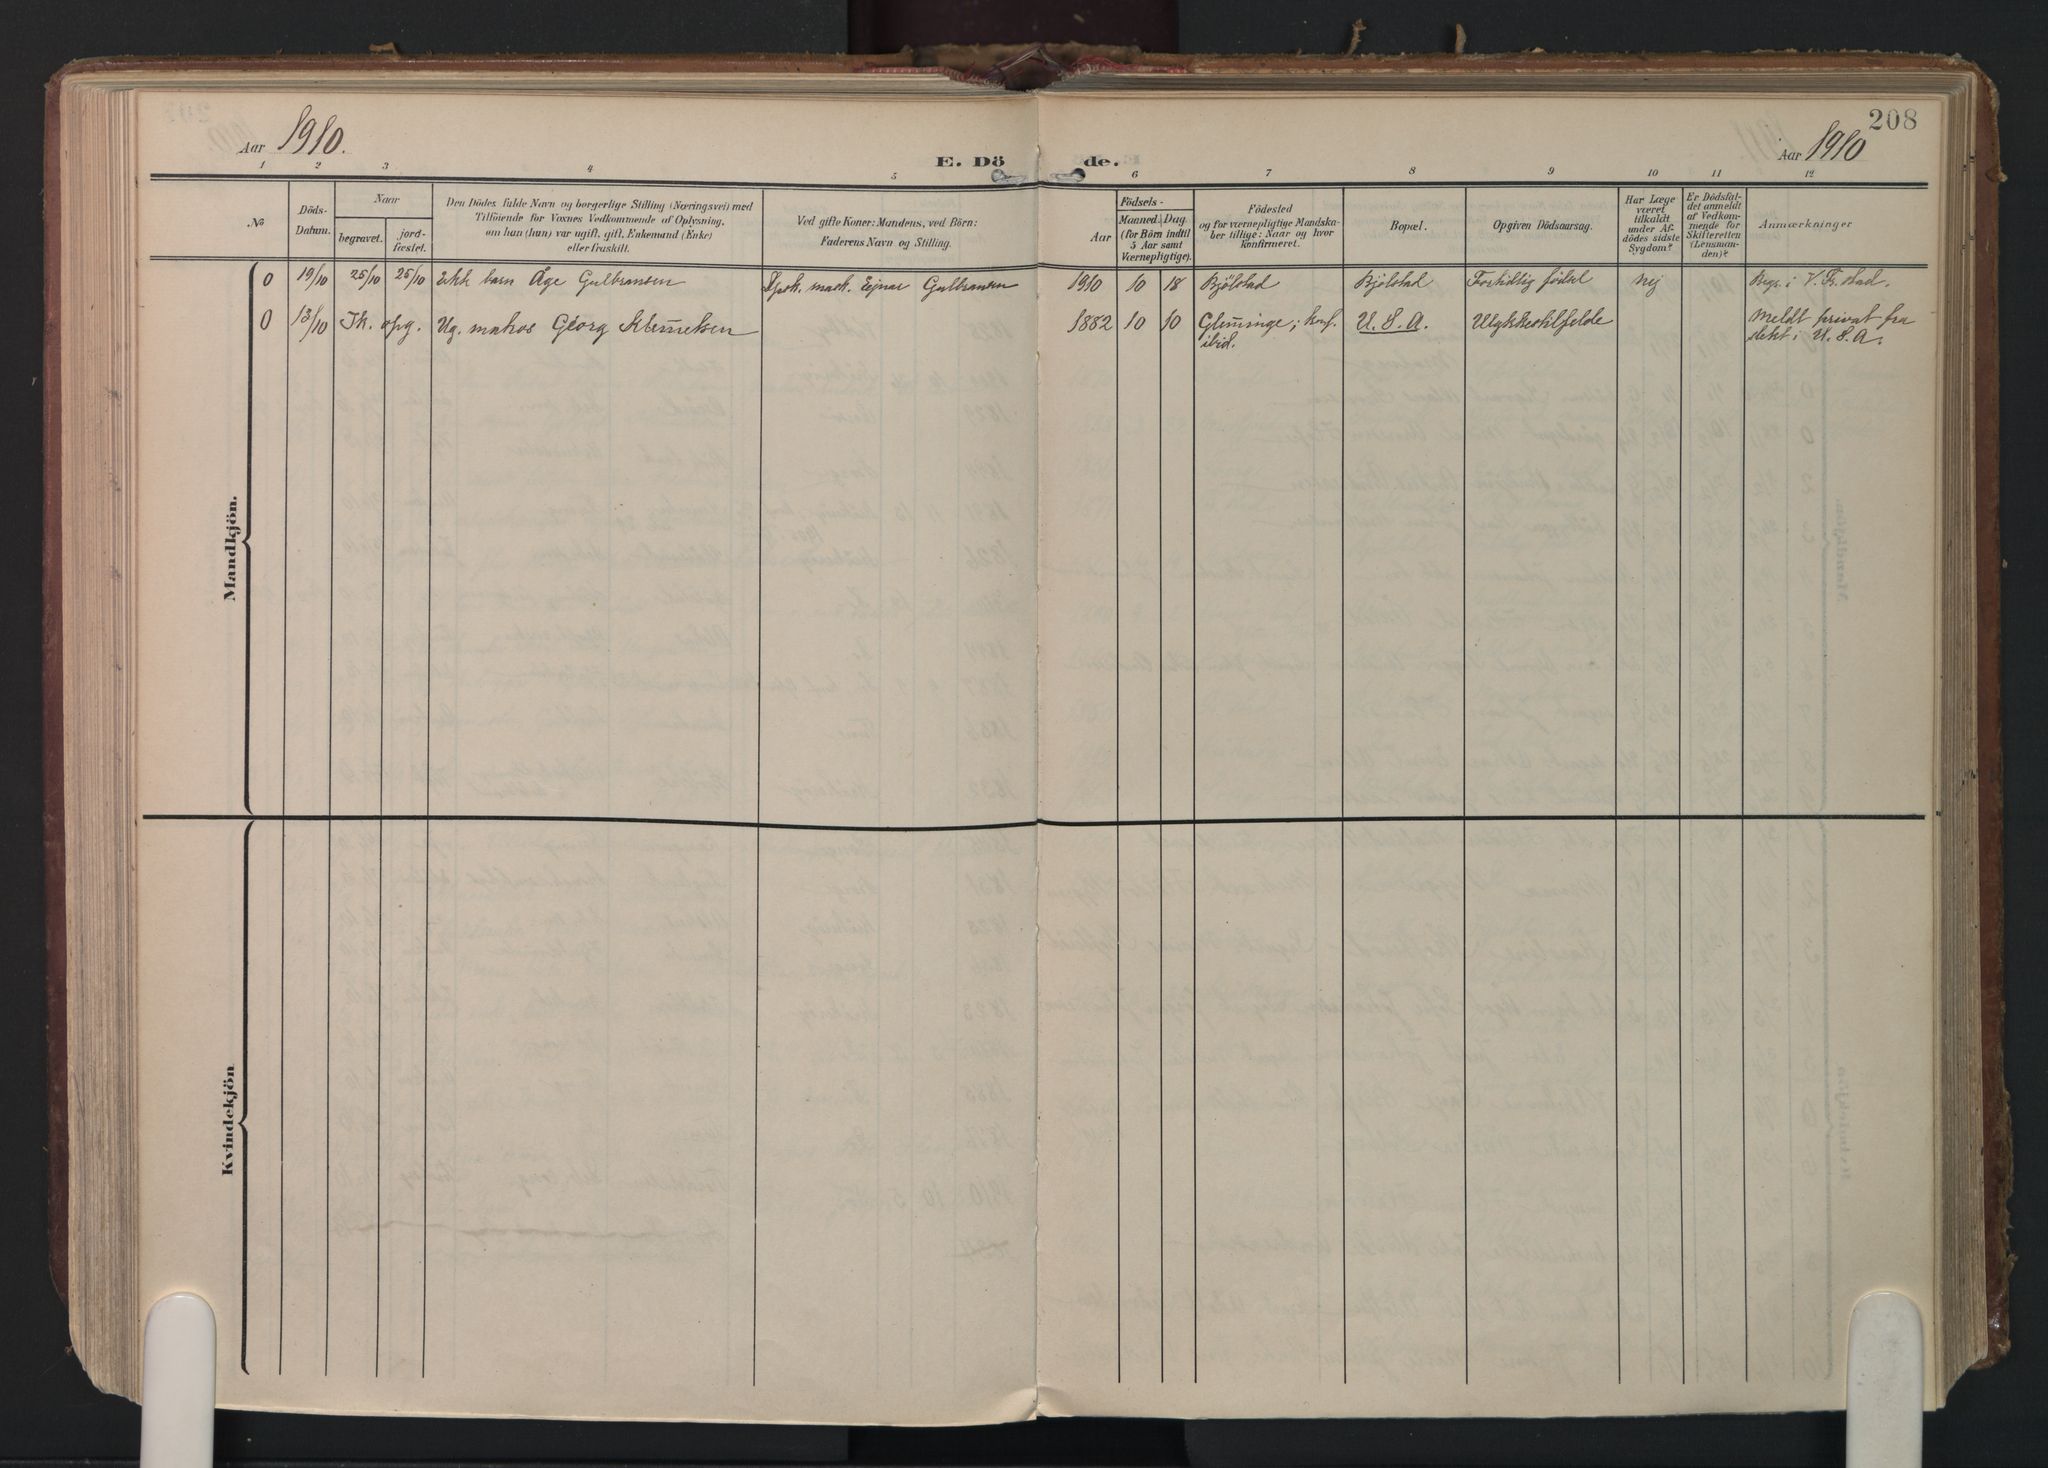 208
Aar 1910.
E. Dö de.
Aar 1910
1 2 3 4 5 6 7 8 9 10 11 12
No
Döds-
Datum.
Naar
begravet.
jord-
fæstet.
Den Dödes fulde Navn og borgerlige Stilling (Næringsvei) med
Tilföiende for Voxnes Vedkommende af Oplysning,
om han (hun) var ugift, gift, Enkemand (Enke)
eller fraskilt.
Ved gifte Koner: Mandens, ved Börn:
Faderens Navn og Stilling.
Födsels-
Aar
Maaned. Dag.
(for Börn indtil
5 Aar samt
Værnepligtige).
Födested
og for værnepligtige Mandska-
ber tillige: Naar og hvor
konfirmeret.
Bopæl.
Opgiven Dödsaarsag.
Har Læge
været
tilkaldt
under Af-
dödes sidste
Sygdom?
Er Dödsfal-
det anmeldt
af Vedkom-
mende for
Skifteretten
(Lensman-
den)?
Anmærkninger
0 19/10 25/10 25/10 Ekk barn Åge Gulbransen mask. Ejnar Gulbransen 1910 10 18 Bjölstad Bjölstad Fortidlig födsel Nej Begr. i V. Fr.stad.
0 13/10 Ik. opg. Ug. Georg Klemetsen 1882 10 10 Glimminge; konf. U. S. A. Ulykkestilfelde Meldt privat fra
ibid. slekt i U. S. A.
Mandkjön.
Kvindekjön